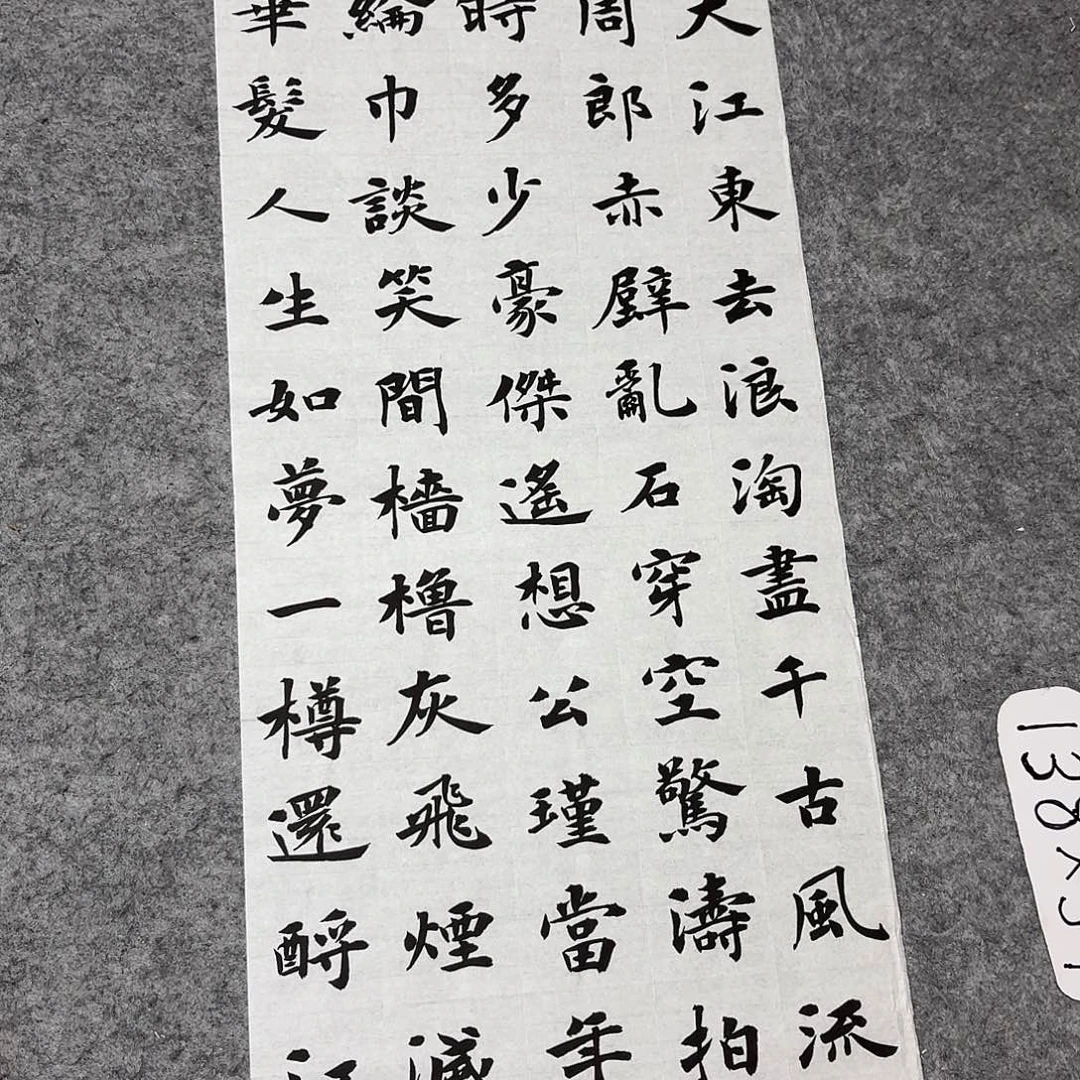 大江東去浪淘盡千古風流
周郎赤壁亂石穿空驚濤拍
時多少豪傑遙想公瑾當年
綸巾談笑間檣櫓灰飛煙滅
華髮人生如夢一樽還酹江
138×